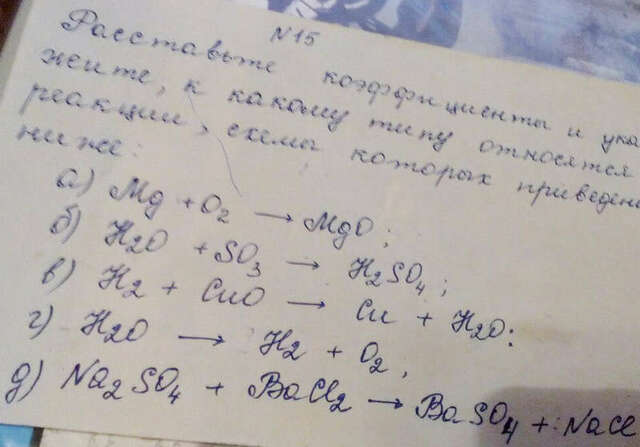 N15
Расставьте коэффициенты и ука
жите, к какому типу относятся
реакции, схемы которых приведен
ниже:
а) Mg + O₂ → MgO;
б) H₂O + SO₃ → H₂SO₄;
в) H₂ + CuO → Cu + H₂O:
г) H₂O → H₂ + O₂,
д) Na₂SO₄ + BaCl₂ → BaSO₄ + NaCl